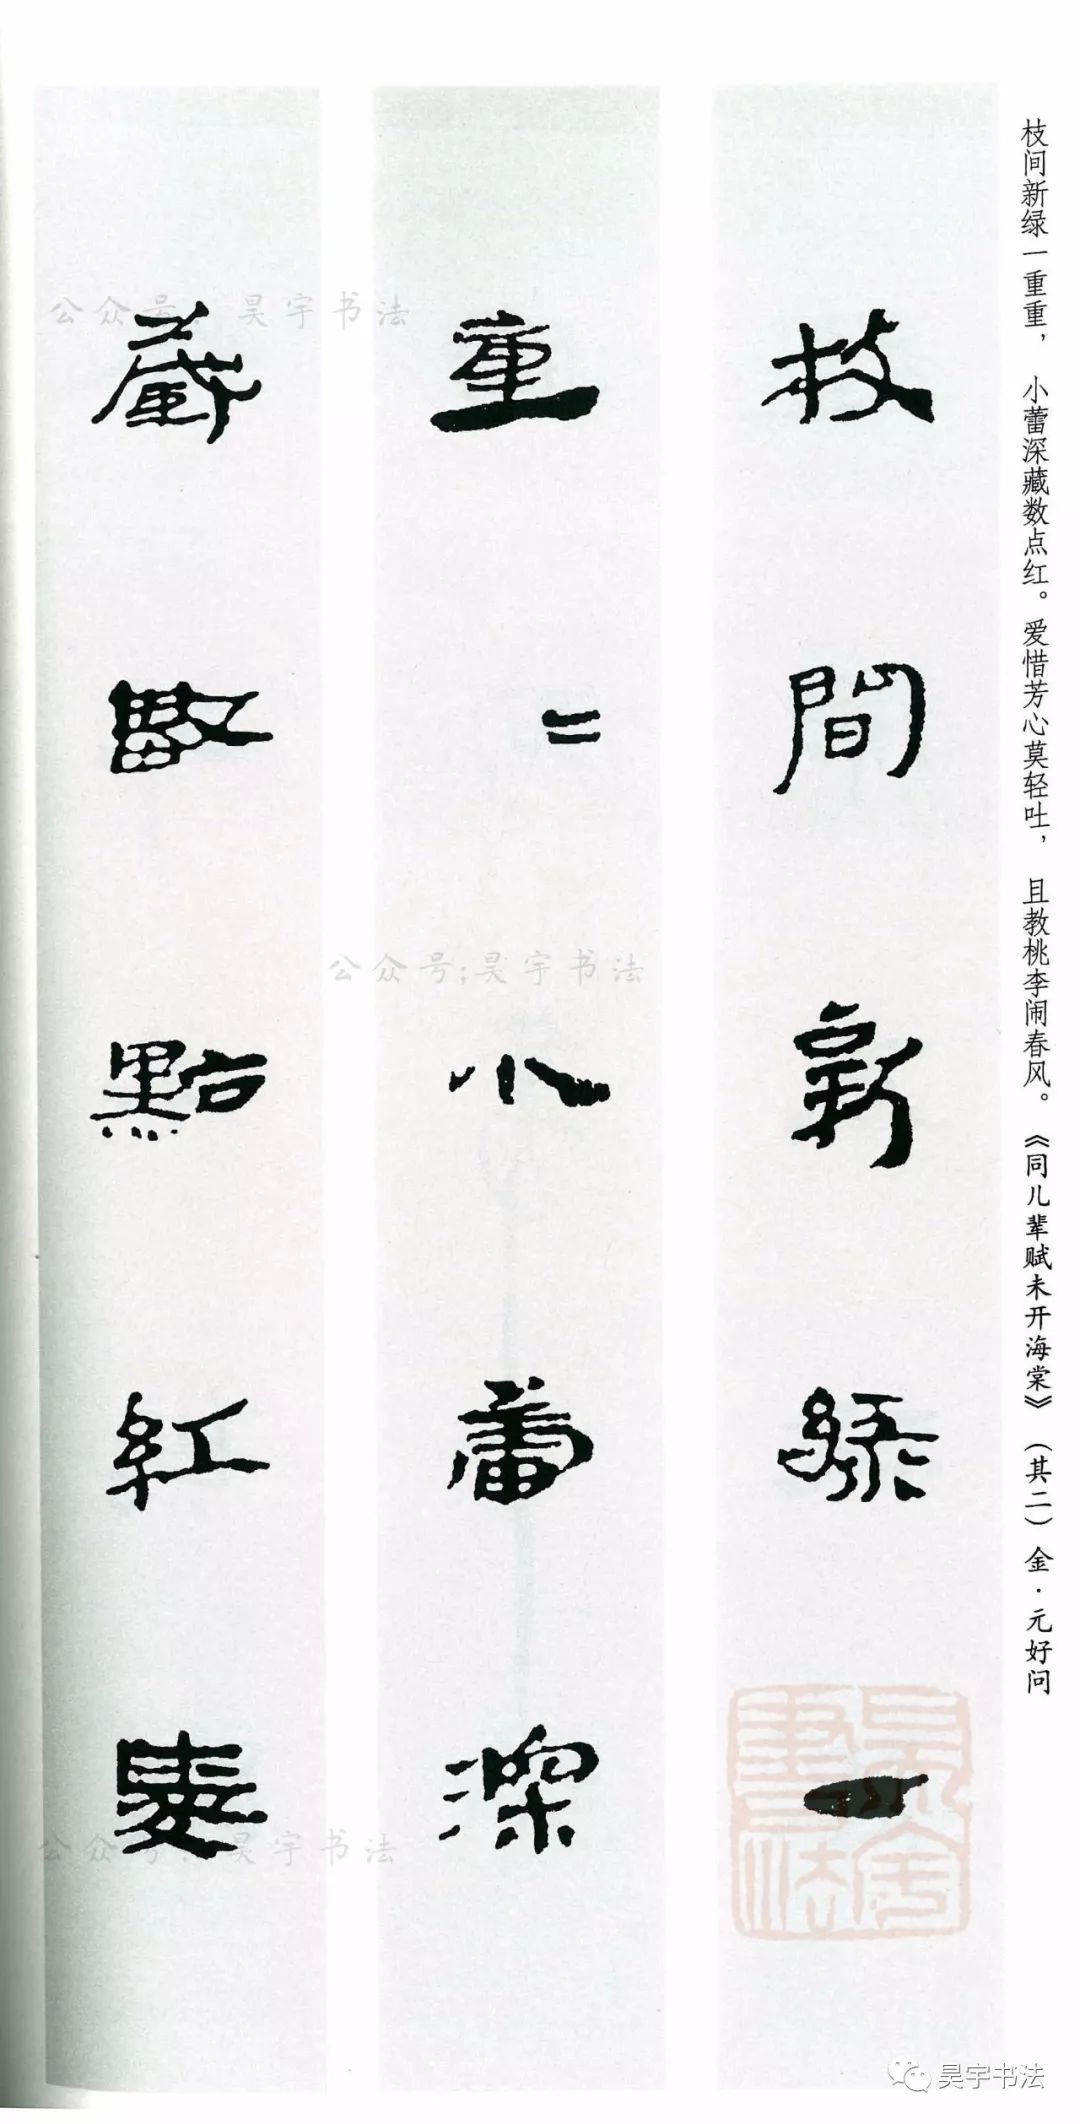 枝间新绿一重重，小蕾深藏数点红。爱惜芳心莫轻吐，且教桃李闹春风。《同儿辈赋未开海棠》（其二）金·元好问
枝間新綠一
重二小蕾深
藏數點紅愛
公众号：昊宇书法
公众号:昊宇书法
公众号：昊宇书法
昊宇書法
昊宇书法